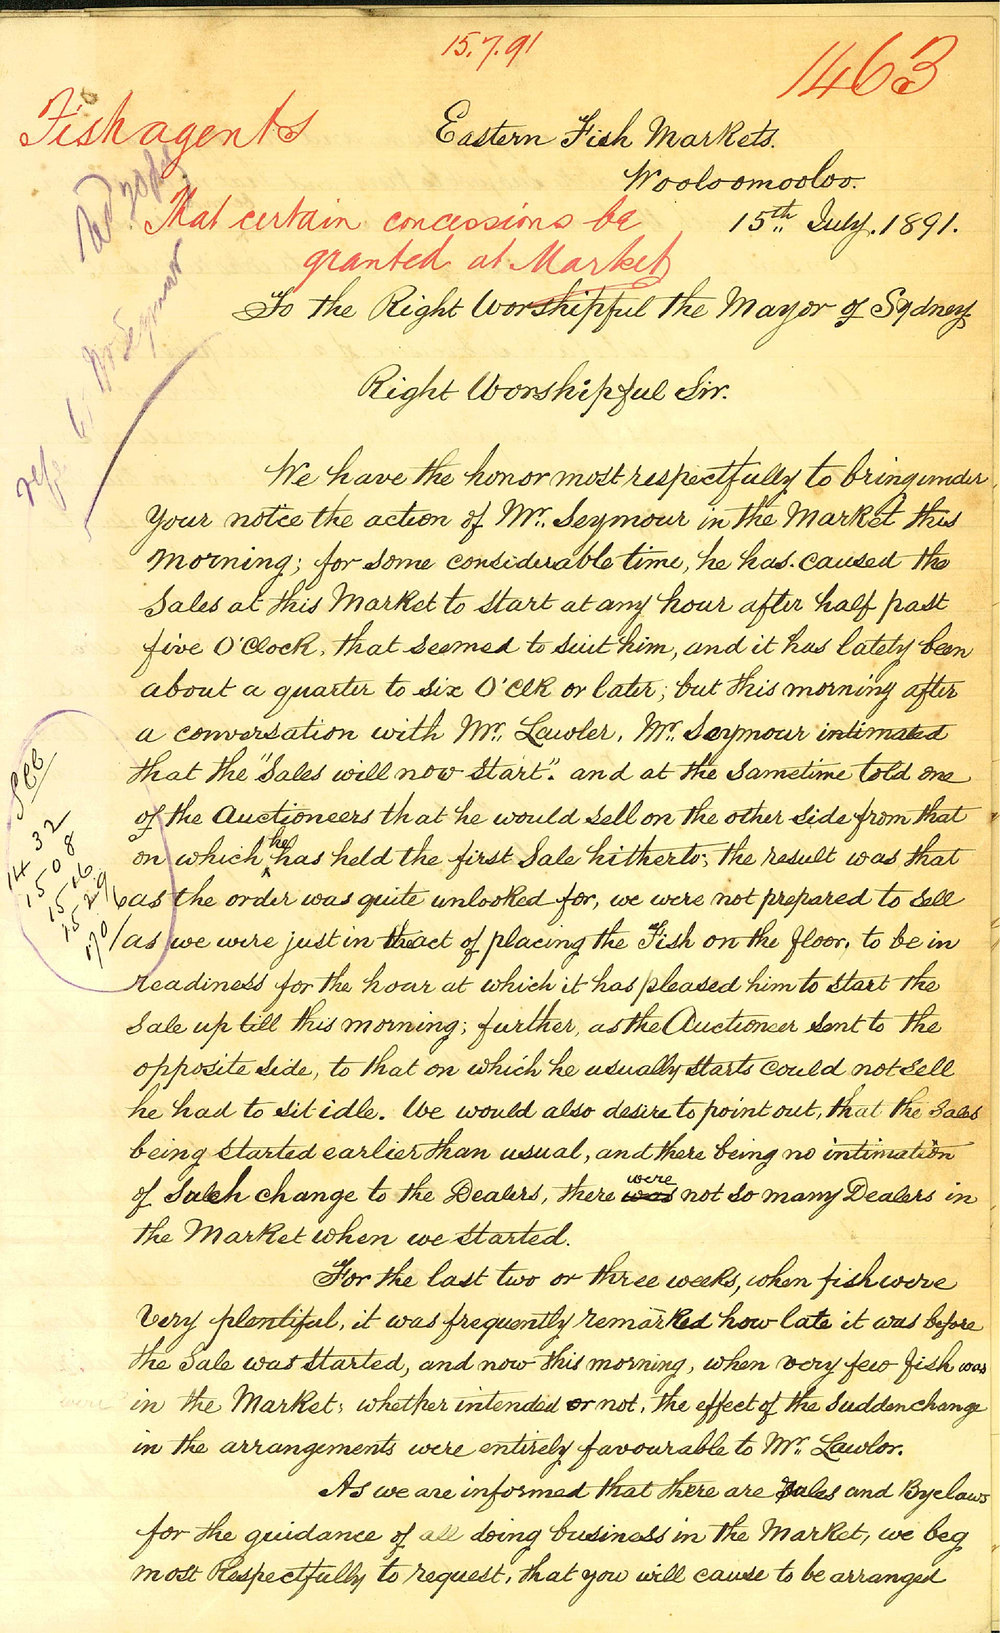 15.7.91
1463
Fish agents
Eastern Fish Markets.
Wooloomooloo.
That certain concessions be
15th July. 1891.
granted at Market
To the Right Worshipful the Mayor of Sydney
refer to Mr Seymour
Right Worshipful Sir.
We have the honor most respectfully to bring under
Your notce the action of Mr. Seymour in the Market this
morning; for some considerable time, he has caused the
Sales at this Market to start at any hour after half past
five O'Clock, that seemed to suit him, and it has lately been
about a quarter to six O'Clk or later; but this morning after
a conversation with Mr. Lawler, Mr. Seymour intimated
that the "Sales will now start". and at the sametime told one
of the Auctioneers that he would sell on the other side from that
on which he has held the first Sale hitherto; the result was that
as the order was quite unlooked for, we were not prepared to sell
as we were just in the act of placing the Fish on the floor, to be in
readiness for the hour at which it has pleased him to start the
Sale up till this morning; further, as the Auctioneer sent to the
opposite side, to that on which he usually starts could not sell
he had to sit idle. We would also desire to point out, that the Sales
being started earlier than usual, and there being no intimation
of such change to the Dealers, there was were not so many Dealers in
the Market when we started.
See
1432
1508
1516
1529
1706
For the last two or three weeks, when fish were
very plentiful, it was frequently remarked how late it was before
the Sale was started, and now this morning, when very few fish was
in the Market; whether intended or not, the effect of the sudden change
in the arrangements were entirely favourable to Mr. Lawlor.
As we are informed that there are Rules and Byelaws
for the guidance of all doing business in the Market, we beg
most Respectfully to request, that you will cause to be arranged